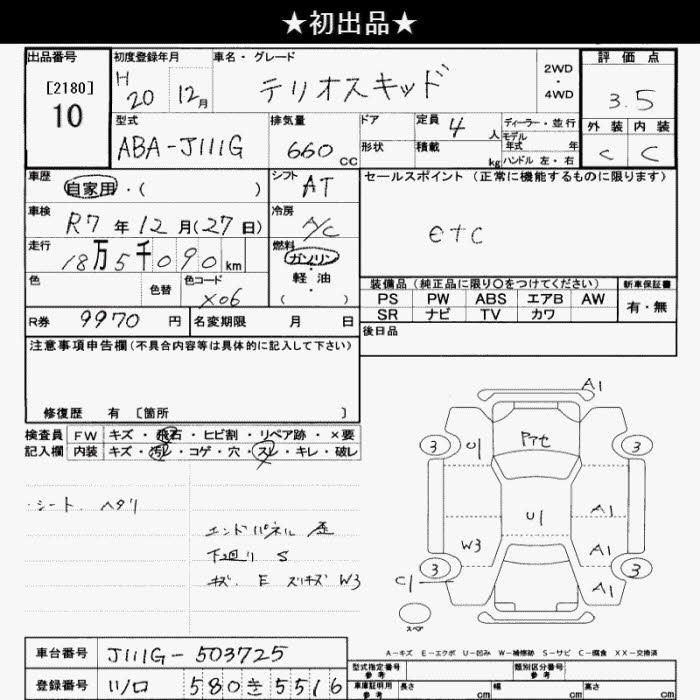 ★初出品★
出品番号
[2180]
10
初度登録年月
H 20 12月
車名・グレード
テリオスキッド
2WD
・
4WD
評価点
3.5
外装 内装
C C
型式
ABA-J111G
排気量
660 CC
ドア
形状
定員 4 人
積載 kg
ディーラー・並行
モデル年式 年
ハンドル 左・右
車歴
自家用・( )
シフト AT
セールスポイント(正常に機能するものに限ります)
etc
車検
R7年12月(27日)
冷房 A/C
走行
18万5千090km
燃料
ガソリン
軽油
( )
色
色替
色コード
X06
装備品(純正品に限り○をつけてください)
新車保証書
PS PW ABS エアB AW
SR ナビ TV カワ
有・無
R券 9970円
名変期限 月 日
後日品
注意事項申告欄(不具合内容等は具体的に記入して下さい)
修復歴 有 [箇所 ]
検査員 FW キズ・飛石・ヒビ割・リペア跡・×要
記入欄 内装 キズ・汚レ・コゲ・穴・スレ・キレ・破レ
・シート ヘタリ
エンドパネル 歪
下廻り S
キズ E スリキズ W3
A1
3 U1 アセ 3
U1 A1
W3 A1
3 3
C1 A1
スペア
A-キズ E-エクボ U-凹み W-補修跡 S-サビ C-腐食 XX-交換済
車台番号 J111G-503725
登録番号 580 き 5516
型式指定番号
参考
類別区分番号
参考
車庫証明用
参考
長さ cm 幅 cm 高さ cm